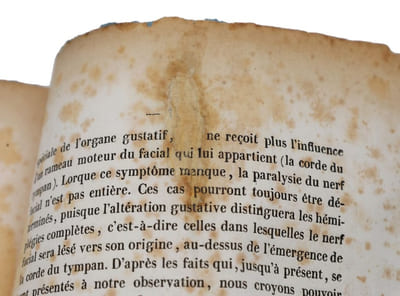 de l'organe gustatif, ne reçoit plus l'influence
rameau moteur du facial qui lui appartient (la corde du
). Lorque ce symptôme manque, la paralysie du nerf
n'est pas entière. Ces cas pourront toujours être dé-
, puisque l'altération gustative distinguera les hémi-
complètes, c'est-à-dire celles dans lesquelles le nerf
sera lésé vers son origine, au-dessus de l'émergence de
la corde du tympan. D'après les faits qui, jusqu'à présent, se
présentés à notre observation, nous croyons pouvoir